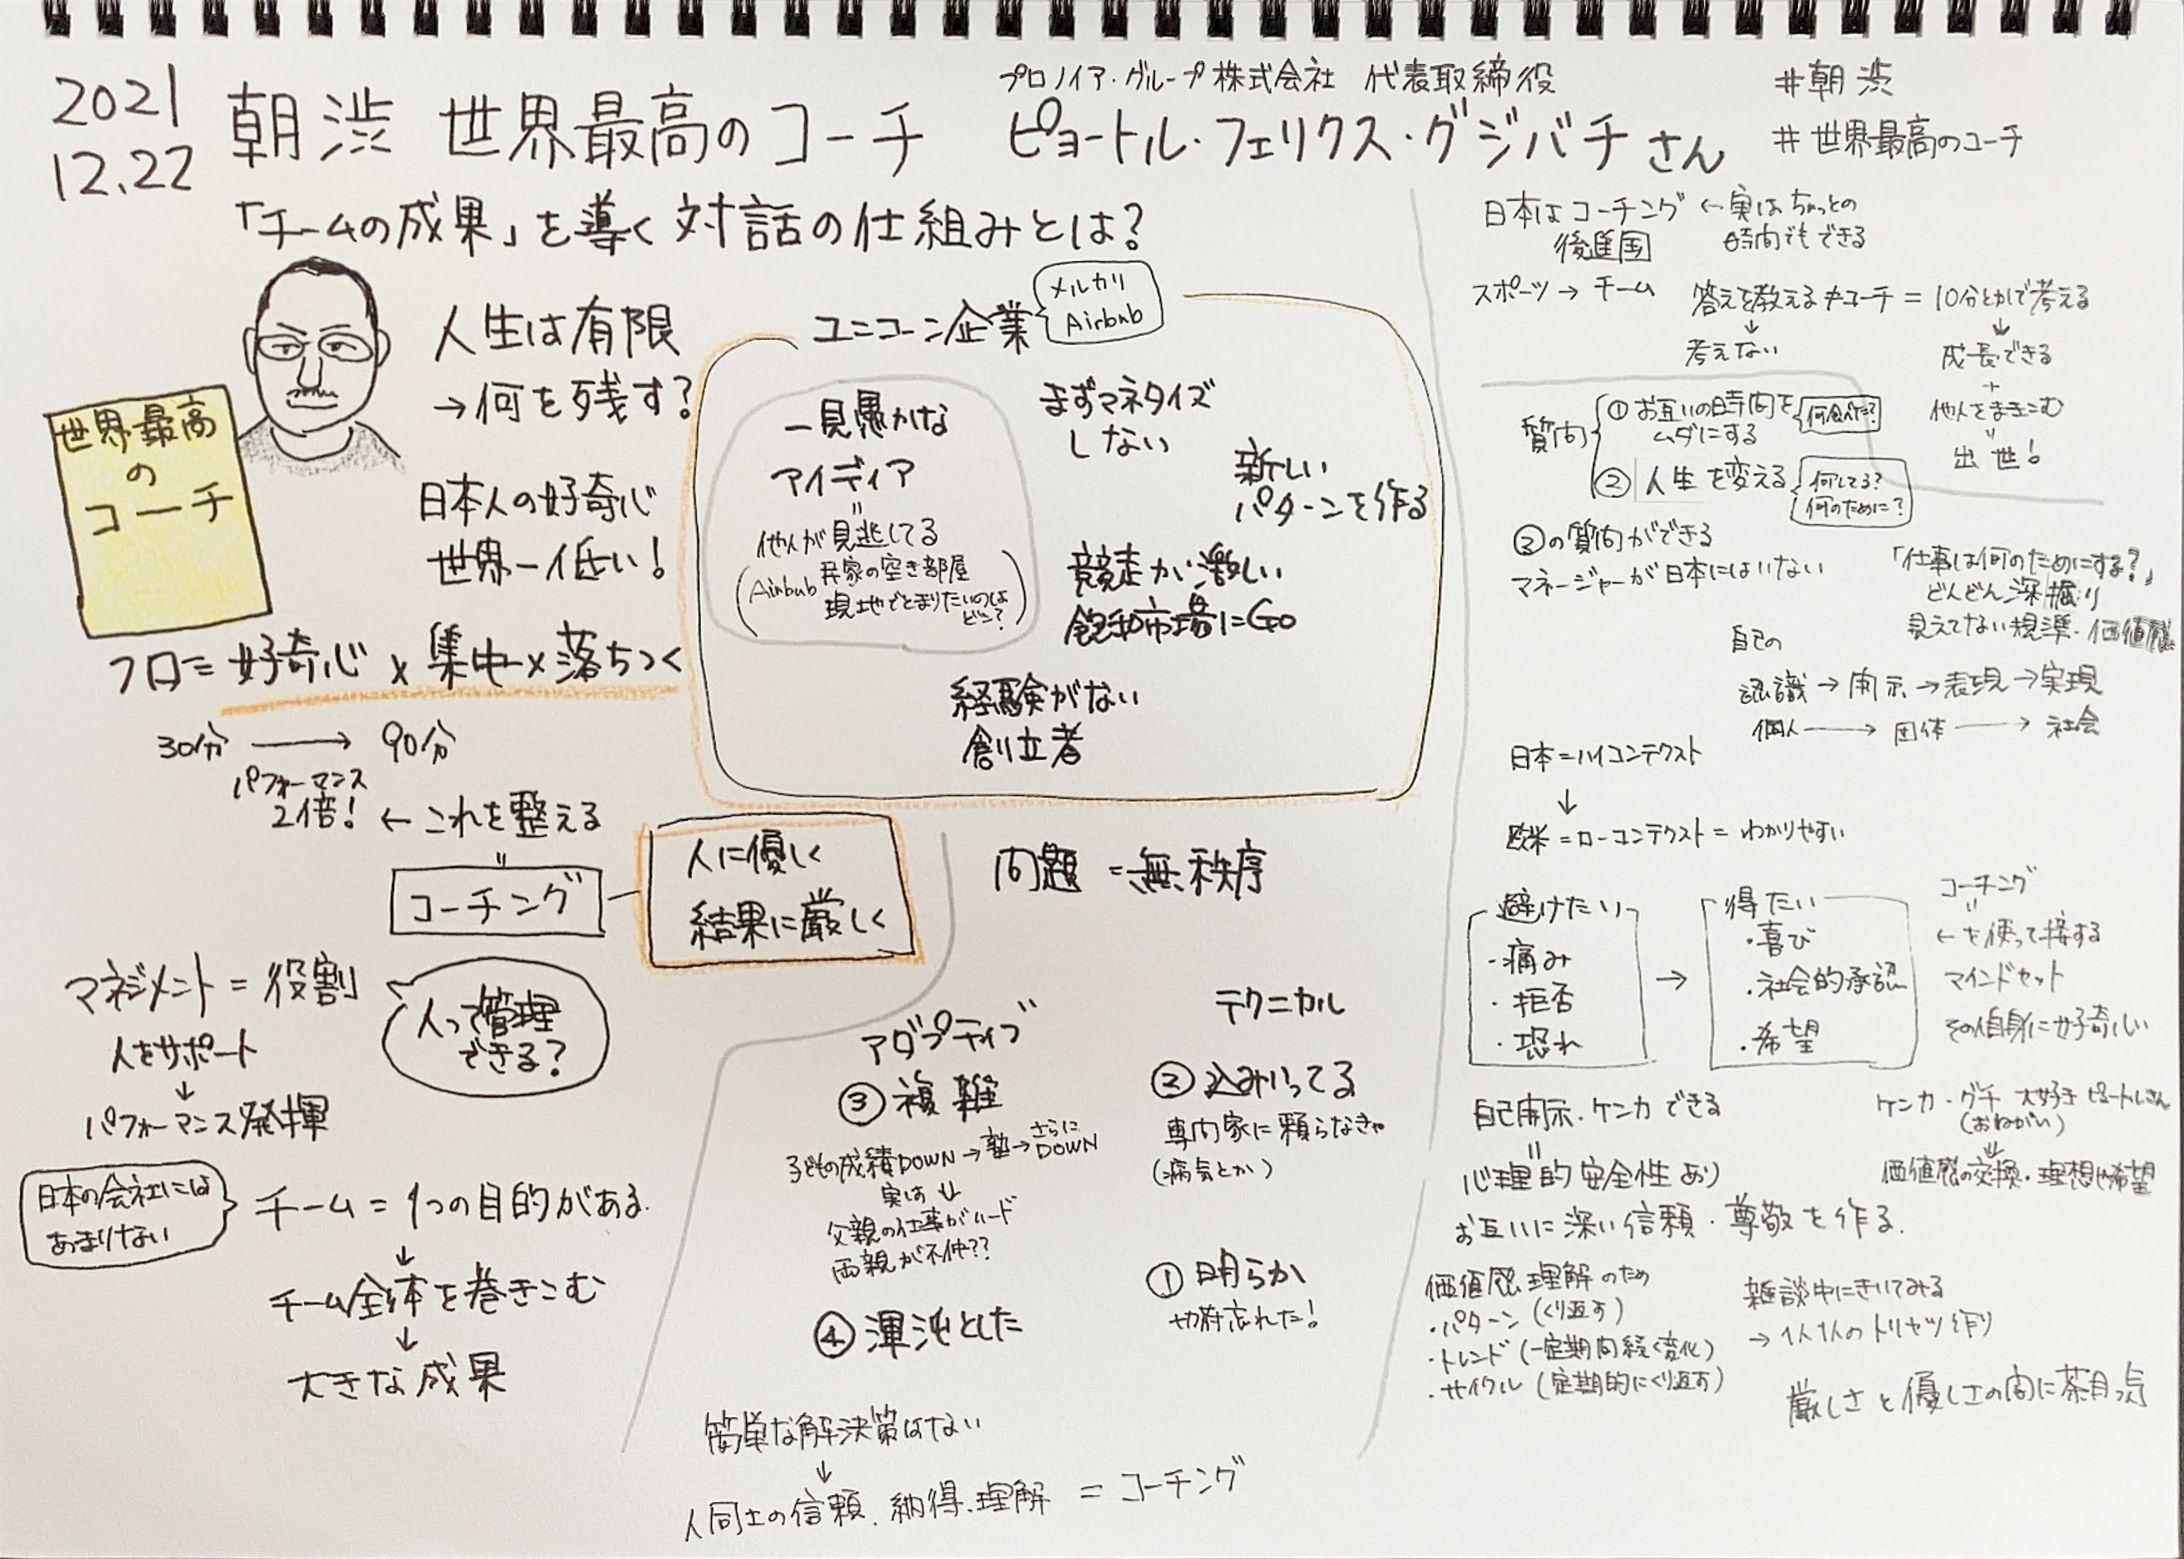 2021
12.22
朝渋 世界最高のコーチ
プロノイア・グループ株式会社 代表取締役
ピョートル・フェリクス・グジバチさん
#朝渋
#世界最高のコーチ
「チームの成果」を導く対話の仕組みとは?
世界最高
の
コーチ
人生は有限
→何を残す?
日本人の好奇心
世界一低い!
フロー=好奇心×集中×落ちつく
30分→90分
パフォーマンス
2倍!←これを整える
=
コーチング
人に優しく
結果に厳しく
マネジメント=役割
人って管理
できる?
人をサポート
↓
パフォーマンス発揮
日本の会社には
あまりない
チーム=1つの目的がある.
↓
チーム全体を巻きこむ
↓
大きな成果
ユニコーン企業
メルカリ
Airbnb
一見愚かな
アイディア
=
他人が見逃してる
(Airbnb
家の空き部屋
現地でとまりたいのは
どこ?)
まずマネタイズ
しない
新しい
パターンを作る
競走が激しい
飽和市場にGo
経験がない
創立者
問題=無秩序
アダプティブ
③複雑
子どもの成績DOWN→塾→さらに
DOWN
実は↓
父親の仕事がハード
両親が不仲??
④渾沌とした
テクニカル
②込みいってる
専門家に頼らなきゃ
(病気とか)
①明らか
切符忘れた!
簡単な解決策はない
↓
人同士の信頼、納得、理解=コーチング
日本はコーチング
後進国
←実はちょっとの
時間でもできる
スポーツ→チーム
答えを教える≠コーチ=10分とかで考える
↓
考えない
↓
成長できる
+
他人をまきこむ
=
出世!
質問
①お互いの時間を
ムダにする
何食べた?
②人生を変える
何してる?
何のために?
②の質問ができる
マネージャーが日本にはいない
「仕事は何のためにする?」
どんどん深掘り
見えてない規準・価値感
自己の
認識→開示→表現→実現
個人→団体→社会
日本=ハイコンテクスト
↓
欧米=ローコンテクスト=わかりやすい
避けたい
・痛み
・拒否
・恐れ
→
得たい
・喜び
・社会的承認
・希望
コーチング
=
←を使って接する
マインドセット
その自身に好奇しい
自己開示・ケンカできる
=
心理的安全性あり
お互いに深い信頼・尊敬を作る.
ケンカ・グチ 大好きピョートルさん
(おねがい)
↓
価値感の交換・理想や希望
価値感理解のため
・パターン(くり返す)
・トレンド(一定期間続く変化)
・サイクル(定期的にくり返す)
雑談中にきいてみる
→1人1人のトリセツ作り
厳しさと優しさの間に茶目っ気